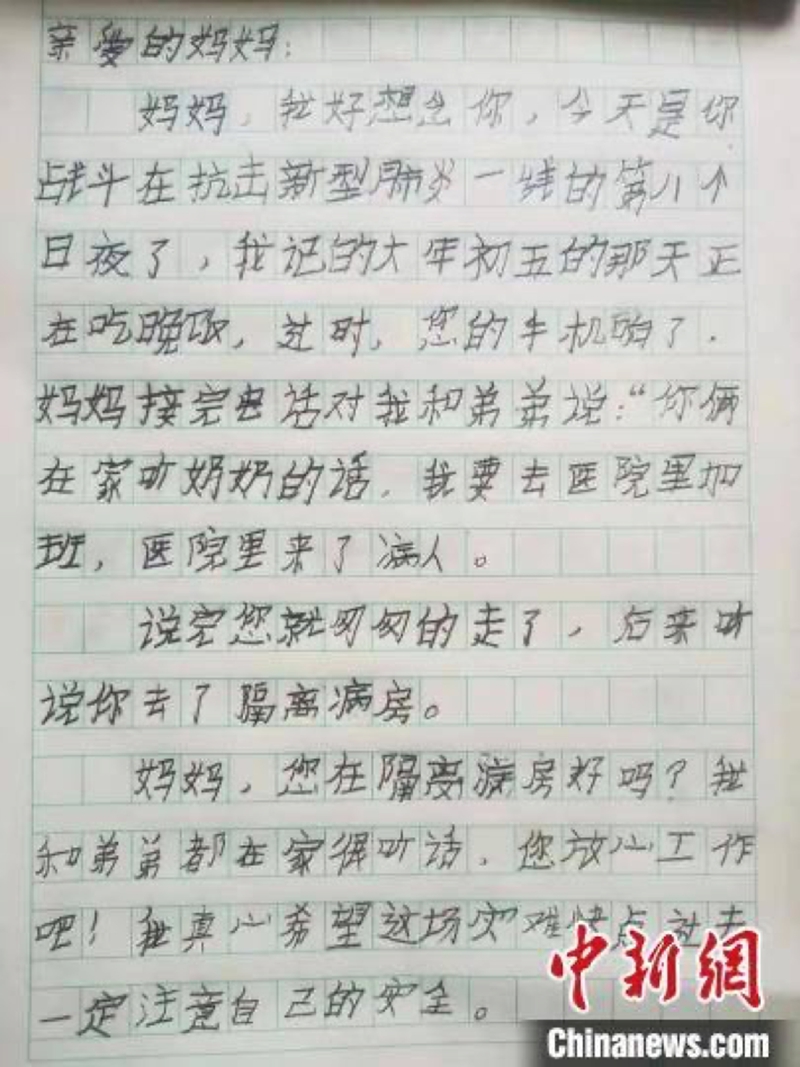 亲爱的妈妈：
妈妈，我好想念你，今天是你
战斗在抗击新型肺炎一线的第八个
日夜了，我记的大年初五的那天正
在吃晚饭，这时，您的手机响了．
妈妈接完电话对我和弟弟说：“你俩
在家听奶奶的话，我要去医院里加
班，医院里来了病人。
说完您就匆匆的走了，后来听
说你去了隔离病房。
妈妈，您在隔离病房好吗？我
和弟弟都在家得听话，您放心工作
吧！我真心希望这场灾难快点过去
一定注意自己的安全。
中新网
Chinanews.com